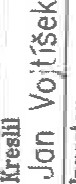 Kreslil
Jan Vojtíšek